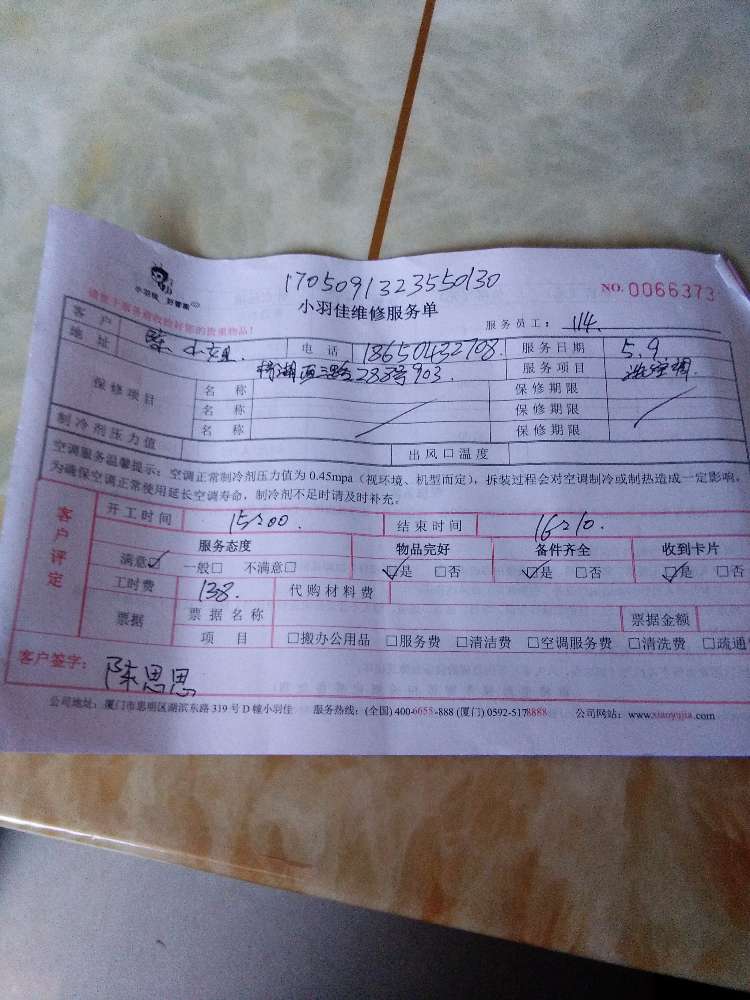 小羽佳 好管家
1705091323550130
NO. 0066373
小羽佳维修服务单
请您于服务前收拾好您的贵重物品！
服务员工： 114.
客户 陈小姐. 电话 18650432708. 服务日期 5.9
地址 湖西三路288号903. 服务项目 洗空调.
保修项目 名称 保修期限
名称 保修期限
名称 保修期限
制冷剂压力值 出风口温度
空调服务温馨提示：空调正常制冷剂压力值为 0.45mpa（视环境、机型而定），拆装过程会对空调制冷或制热造成一定影响。
为确保空调正常使用延长空调寿命，制冷剂不足时请及时补充。
客户评定
开工时间 15:00. 结束时间 16:10.
服务态度 物品完好 备件齐全 收到卡片
满意☑ 一般□ 不满意□ ☑是 □否 ☑是 □否 ☑是 □否
工时费 138. 代购材料费
票据 票据名称 票据金额
项目 □搬办公用品 □服务费 □清洁费 □空调服务费 □清洗费 □疏通
客户签字： 陈思思
公司地址：厦门市思明区湖滨东路 319 号 D 幢小羽佳 服务热线：(全国) 400-6655-888 (厦门) 0592-5178888 公司网站：www.xiaoyujia.com